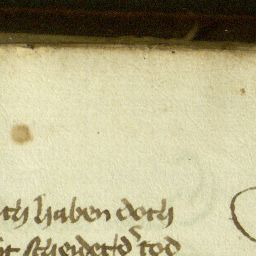 ich haben doch
ht scheidet d' tod